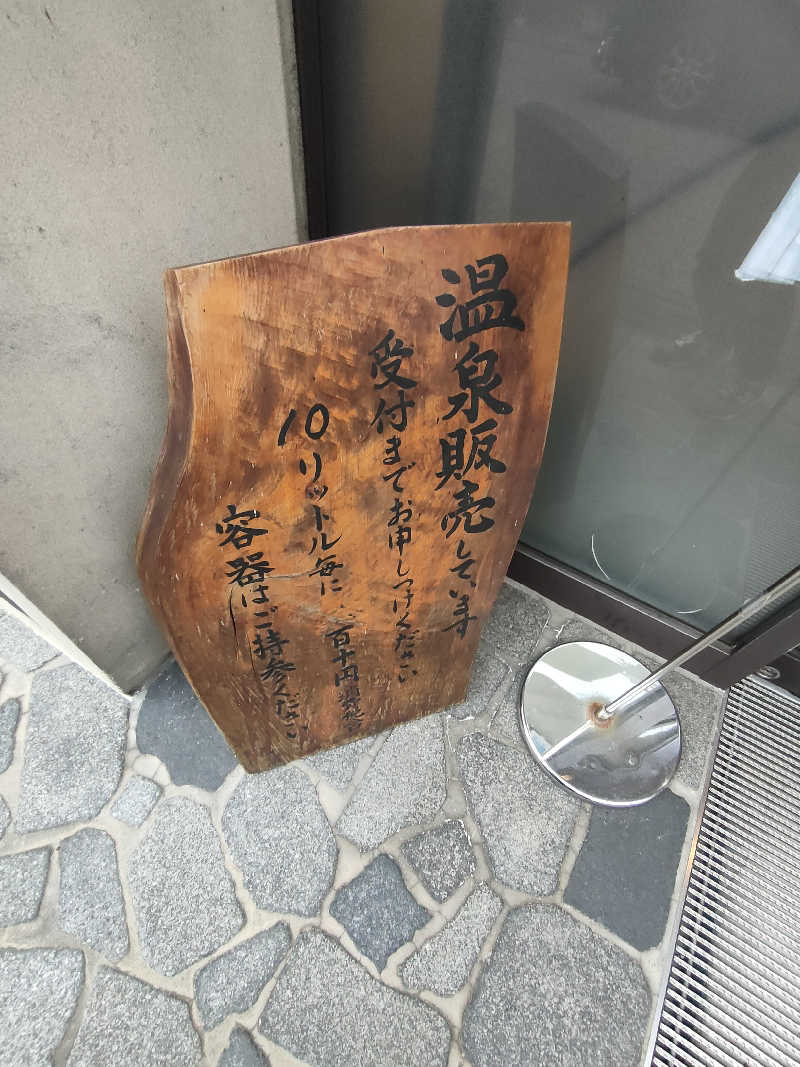 温泉販売しています
受付までお申しつけください
10リットル毎に 百十円
容器はご持参ください